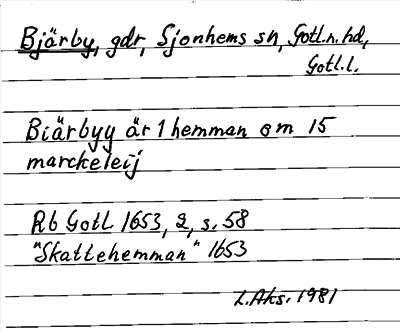 Bjärby, gdr, Sjonhems sn, Gotl. n. hd,
Gotl. l.
Biärbyy är 1 hemman om 15
marckeleij
Rb Gotl 1653, 2, s. 58
"Skattehemman" 1653
L. Aks. 1981